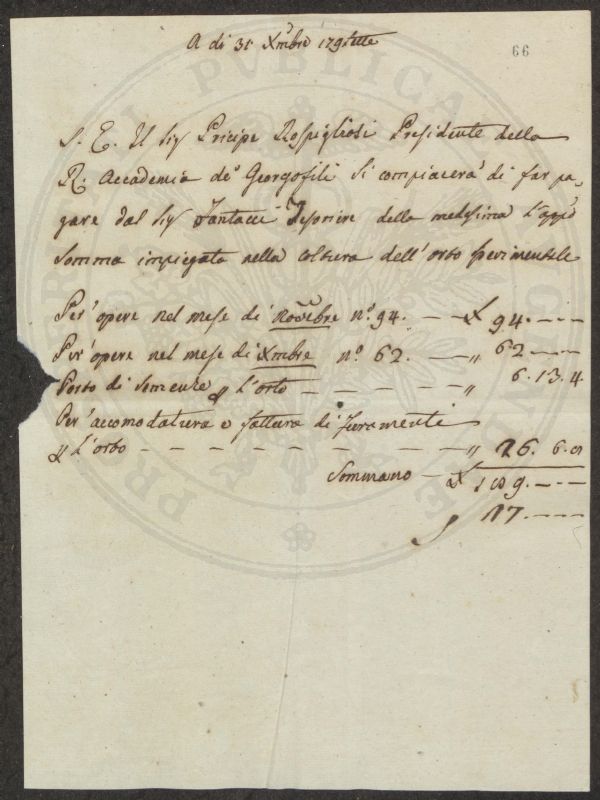 A di 31 Xmbre 179sette
66
S. E. Il Sig Pricipe Rospigliosi Presidente della
R. Accademia de' Georgofili si compiacerà di far pa,
gare dal Sig Fantacci Tesoriere della medesima l'appo
somma impiegata nella coltura dell'orto sperimentale
Per opere nel mese di Novebre n.º 94. — £ 94. — —
Per opere nel mese di Xmbre n.º 62. — " 62 — —
Porto di semente p l'orto — — — — — " 6. 13. 4
Per accomodatura e fattura di ferramenti
p l'orto — — — — — — — — — " 26. 6. 8
Sommano — £ 189. — —
17. — —